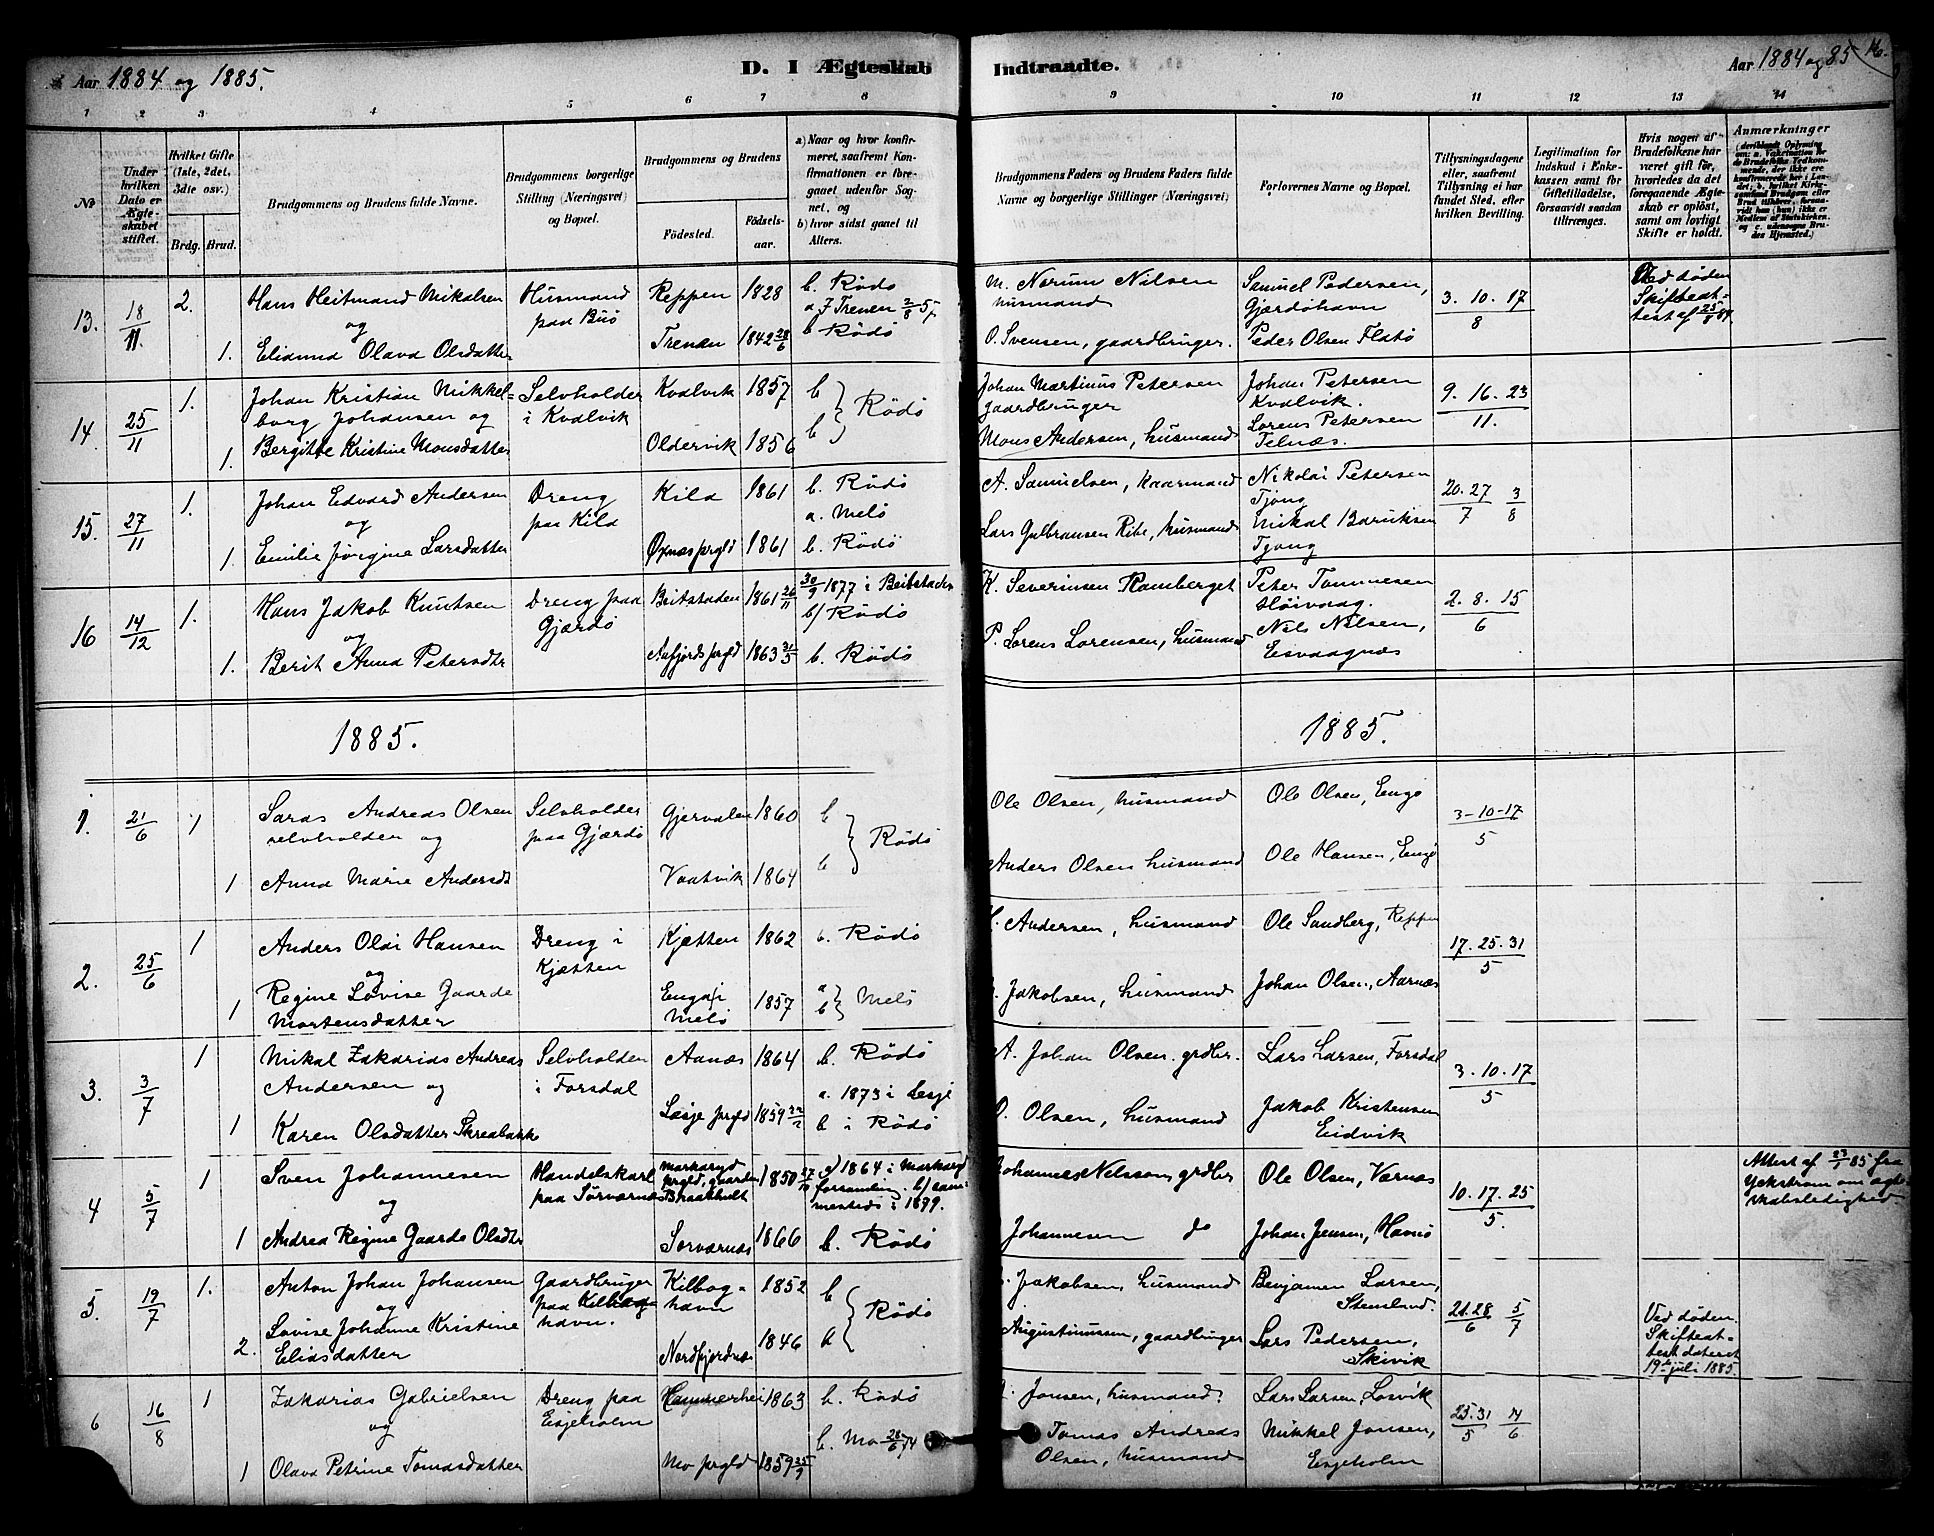 Aar 1884 og 1885.
D. I Ægteskab
Indtraadte.
Aar 1884 og 85
16.
1 2 3 4 5 6 7 8
9 10 11 12 13 14
No
Under hvilken Dato er Ægteskabet stiftet.
Hvilket Gifte (1ste, 2det, 3die osv.)
Brdg. Brud.
Brudgommens og Brudens fulde Navne.
Brudgommens borgerlige Stilling (Næringsvei) og Bopæl.
Brudgommens og Brudens
Födested.
Födsels-aar.
a) Naar og hvor konfirmeret, saafremt Konfirmationen er foregaaet udenfor Sognet, og
b) hvor sidst gaaet til Alters.
Brudgommens Faders og Brudens Faders fulde Navne og borgerlige Stillinger (Næringsvei)
Forlovernes Navne og Bopæl.
Tillysningsdagene eller, saafremt Tillysning ei har fundet Sted, efter hvilken Bevilling.
Legitimation for Indskud i Enkekassen samt for Giftetilladelse, forsaavidt saadan tiltrænges.
Hvis nogen af Brudefolkene har været gift för, hvorledes da det foregaaende Ægteskab er oplöst, samt om lovligt Skifte er holdt.
Anmærkninger
13. 18/11. 2. Hans Heitmand Mikalsen Husmand Reppen 1828 b. Rödö
og paa Buö a. Trenen 2/8 57
1. Elianna Olava Olsdatter Trenen 1842 28/6 b Rödö
M. Norum Nilsen Samuel Pedersen, 3. 10. 17 Ved döden
husmand Gjærdöhavn 8 Skifteat-
O. Svensen, gaardbruger. Peder Olsen Flatö test af 25/8 84
14. 25/11 1. Johan Kristian Mikkel- Selvholder Kvalvik 1857 b
borg Johansen og i Kvalvik Rödö
1. Bergitte Kristine Monsdatter Oldervik 1856 b
Johan Martinus Petersen Johan Petersen 9. 16. 23
gaardbruger Kvalvik. 11.
Mons Andersen, husmand Lorens Petersen
Telnæs.
15. 27/11 1. Johan Edvard Andersen Dreng Kila 1861 b. Rödö
og paa Kila a. Melö
1 Emilie Jörgine Larsdatter Øxnæs prgld 1861 b. Rödö
A. Samuelsen, kaarmand Nikolai Petersen 20. 27 3
Tjong 7 8
Lars Gulbransen Ribe, husmand Mikal Baruksen
Tjong
16 14/12 1. Hans Jakob Knutsen Dreng paa Beitstaden 1861 26/11 30/9 1877 i Beitstaden
og Gjærdö b/ Rödö
1. Berit Anna Petersdtr Aafjords prgld 1863 31/5 b. Rödö
K. Severinsen Ramberget Peter Tommesen 2. 8. 15
Höivaag. 6
P. Lorens Lorensen, husmand Nils Nilsen,
Eisvaagnæs
1885. 1885.
1. 21/6 1 Saras Andreas Olsen Selvholder Gjervalen 1860 b
selvholder og paa Gjærdö Rödö
1 Anna Marie Andersdt Vaatvik 1864 b
Ole Olsen, husmand Ole Olsen, Engö 3-10-17
5
Anders Olsen husmand Ole Hansen, Engö
2. 25/6 1 Anders Olai Hansen Dreng i Kjætten 1862 b. Rödö
og Kjætten
1 Regine Lovise Gaarde Engaf i 1857 a
Mortensdatter Melö b Melö
Andersen, husmand Ole Sandberg, Reppen 17. 25. 31
5
Jakobsen, husmand Johan Olsen, Aarnæs
3. 3/7 1 Mikal Zakarias Andreas Selvholder Aanæs 1864 b. Rödö
Andersen og i Forsdal a. 1873 i Lesje
1 Karen Olsdatter Skreabakk Lesje prgld 1859 b i Rödö
A. Johan Olsen. grdbr. Lars Larsen, Forsdal 3. 10. 17
5
O. Olsen, husmand Jakob Kristensen
Eidvik
4 5/7 1 Sven Johannesen Handelskarl Markaryd 1850 a) 1864 i Markaryd
og paa Sörværnæs prgld, gaarden forsamling. b) sam-
Braakhult mesteds i 1899.
1 Andrea Regine Gaards Olsdtr Sorværnæs 1866 b. Rödö
Johannes Nelsson, grdbr Ole Olsen, Værnæs 10. 17. 25 Attest af 23/1 85 fra
5. Yckstrom om ægte-
skabsledighed.
Johannesen do Johan Jensen, Havnö
5. 19/7 1. Anton Johan Johansen Gaardbruger Kilbog- 1852 b
og paa Kilbog- havn Rödö
2. Lovise Johanne Kristine havn. Nordfjordnæs 1846 b
Eliasdatter
Jakobsen, husmand Benjamin Larsen, 21.28 5
Stensland. 6 7
Augustinussen, gaardbruger Lars Pedersen, Ved döden.
Skivik Skifteat-
test dateret
19de juli 1885.
6 16/8 1 Zakarias Gabrielsen Dreng paa 1863 b. Rödö
og Esjeholm
1 Olava Petrine Tomasdatter Mo prgld 1859 25/9 b. Mo
Jonsen, husmand. Lars Larsen, Losvik 25.31 14
Tomas Andreas Mikkel Jonsen, 5 6
Olsen, husmand Esjeholm